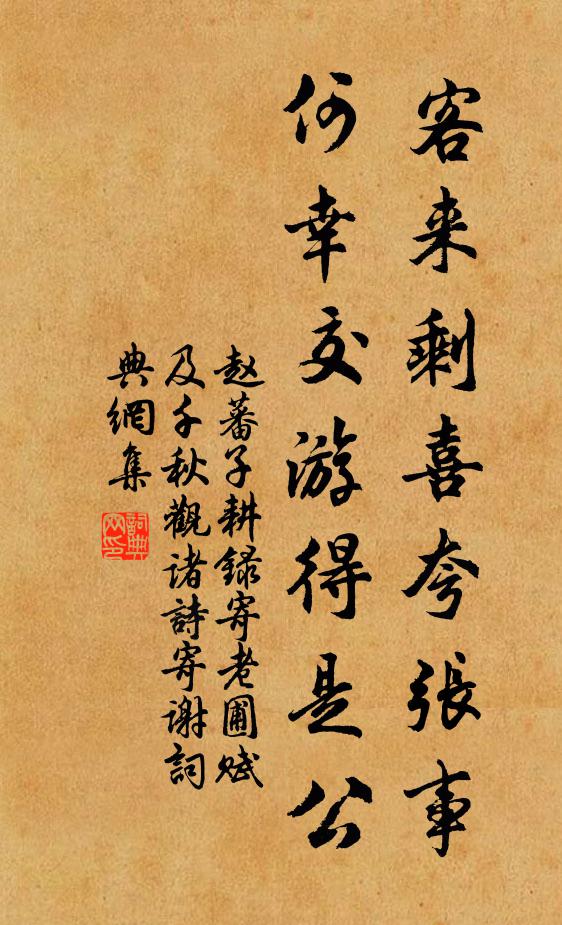 客来剩喜夸張事
何幸交游得是公
赵蕃子耕録寄老圃赋
及千秋觀诸詩寄谢詞
典網集
詞典网印